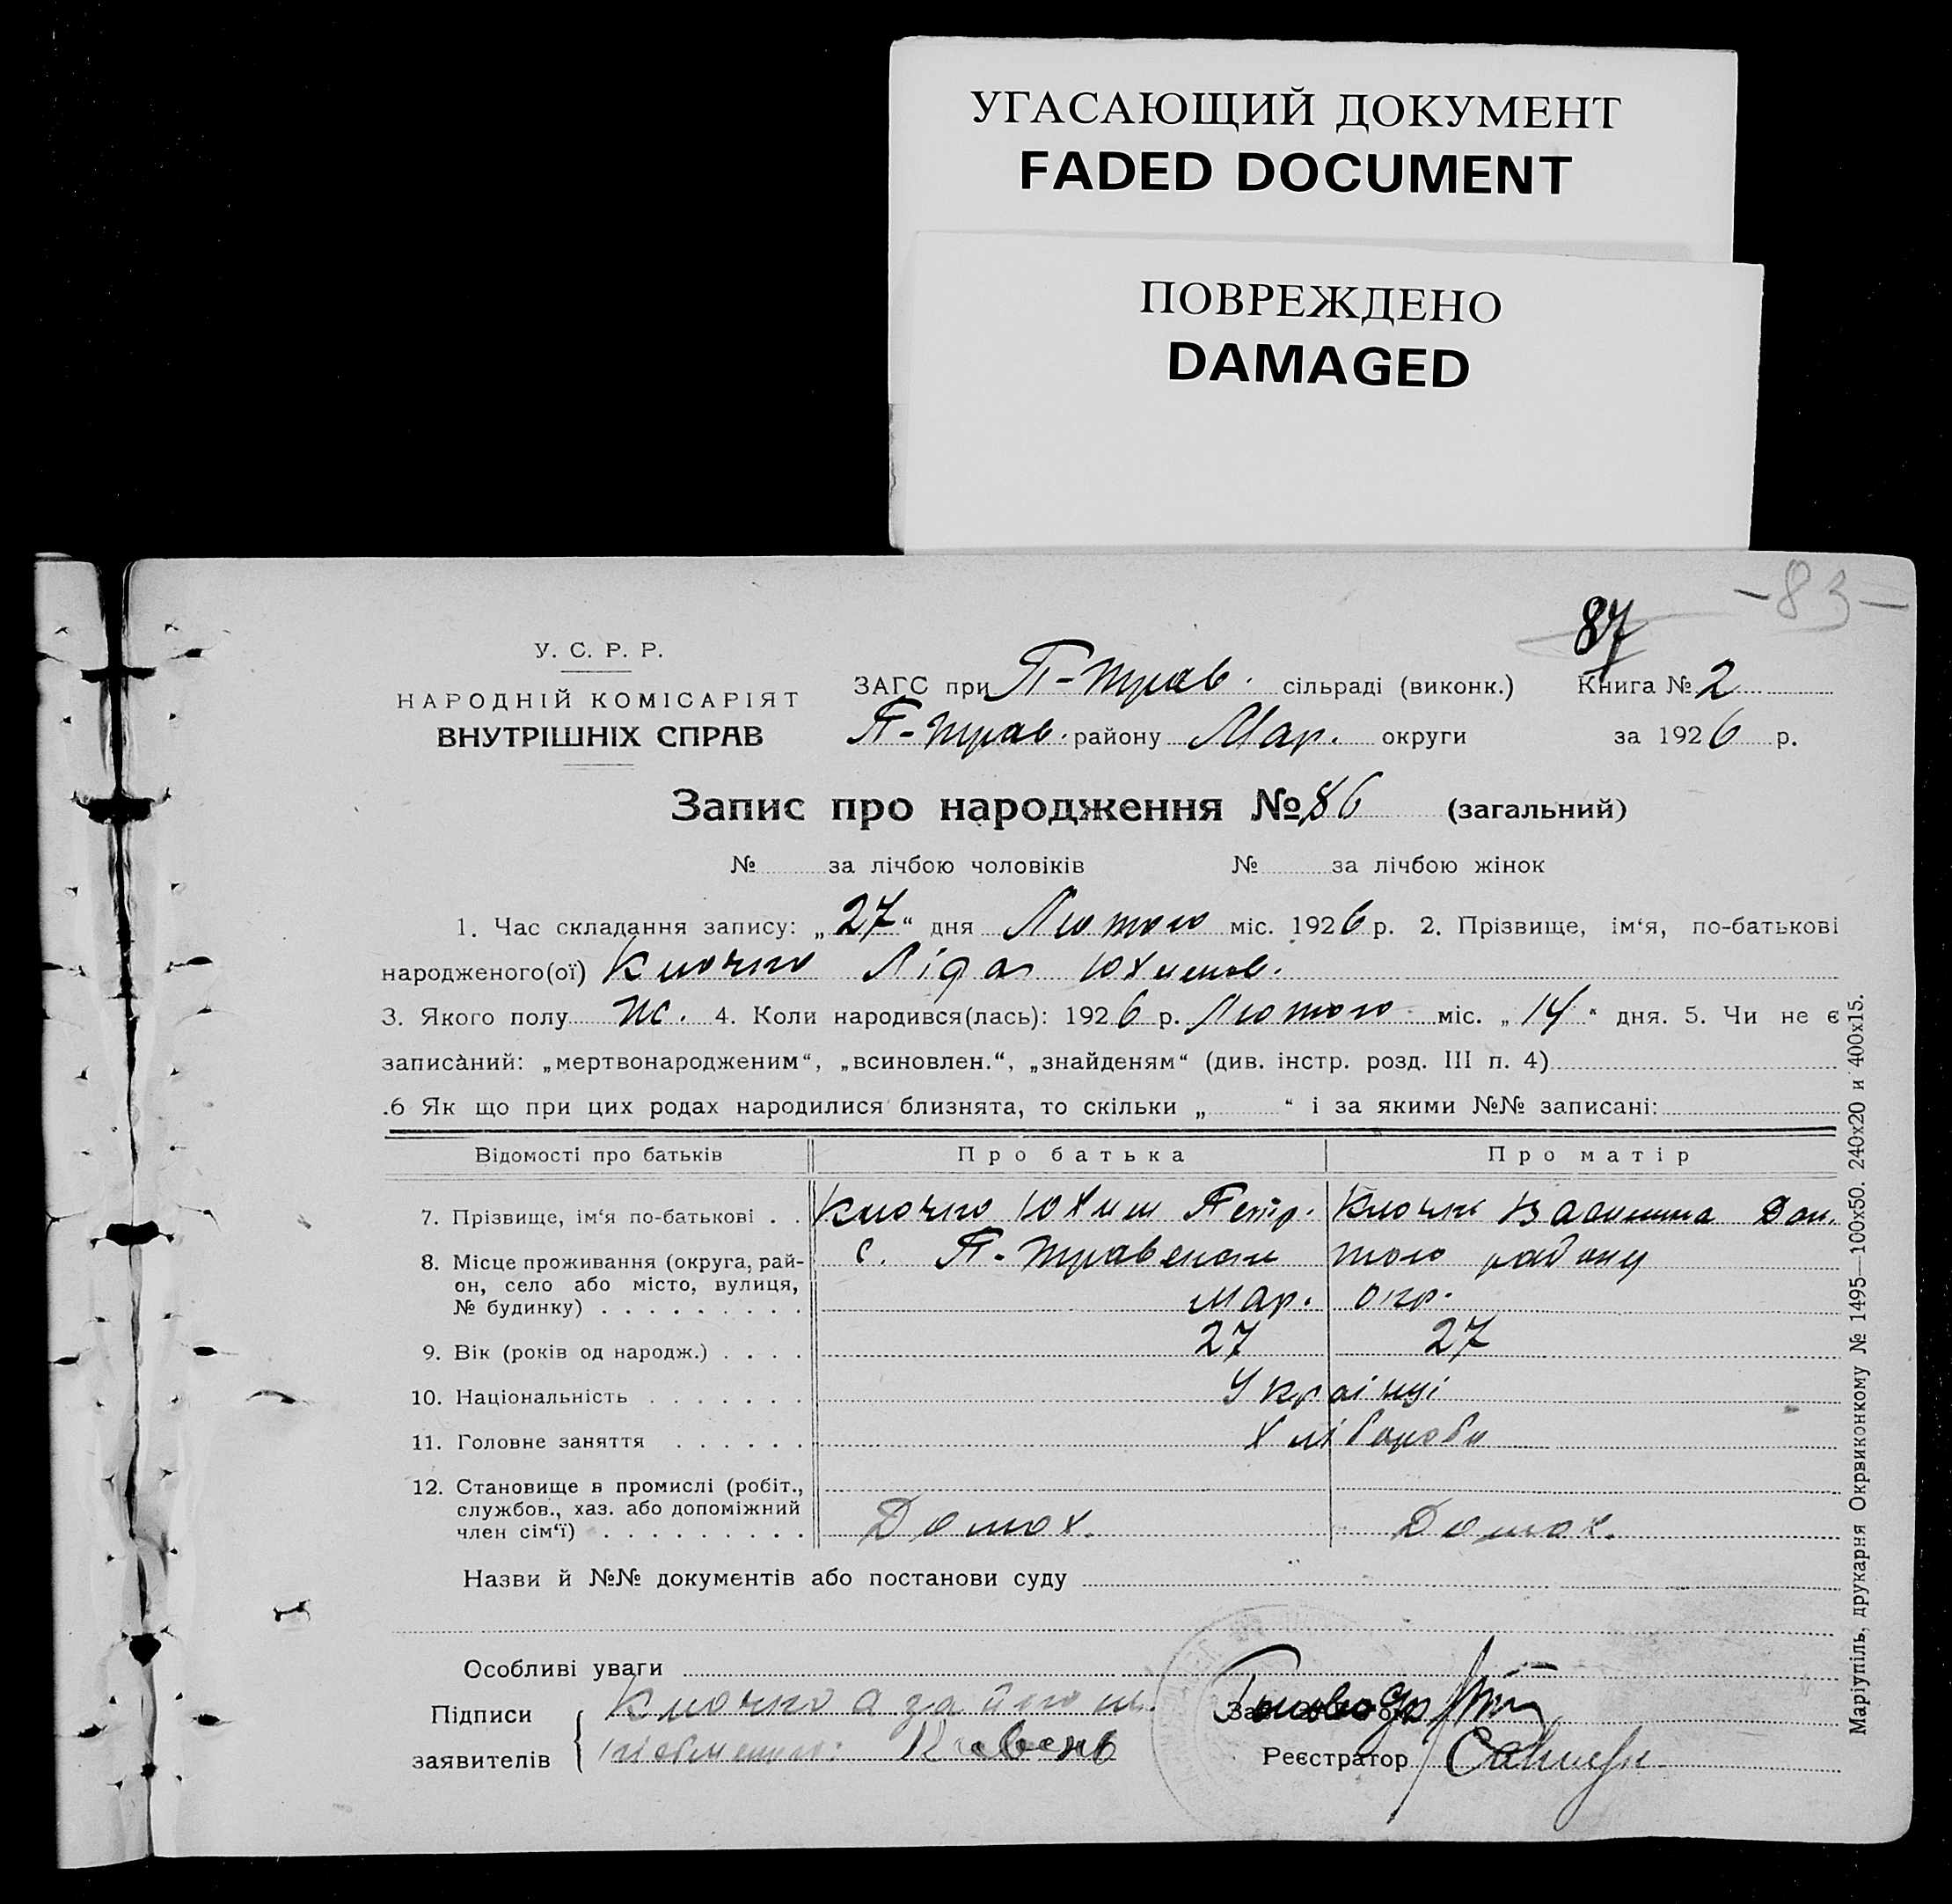 УГАСАЮЩИЙ ДОКУМЕНТ
FADED DOCUMENT
ПОВРЕЖДЕНО
DAMAGED
-83-
87
У. С. Р. Р.
НАРОДНІЙ КОМІСАРІЯТ
ВНУТРІШНІХ СПРАВ
ЗАГС при П-Трав. сільраді (виконк.) Книга № 2
П-Трав. району Мар. округи за 1926 р.
Запис про народження № 86 (загальний)
№ за лічбою чоловіків № за лічбою жінок
1. Час складання запису: „27“ дня Лютого міс. 1926 р. 2. Прізвище, ім‘я, по-батькові
народженого(ої) Клочко Ліда Юхимов.
3. Якого полу ж. 4. Коли народився(лась): 1926 р. Лютого міс. „14“ дня. 5. Чи не є
записаний: „мертвонародженим“, „всиновлен.“, „знайденям“ (див. інстр. розд. III п. 4)
.6 Як що при цих родах народилися близнята, то скільки „ “ і за якими №№ записані:
Відомості про батьків Про батька Про матір
7. Прізвище, ім‘я по-батькові . . Клочко Юхим Петр. Клочко
8. Місце проживання (округа, рай-
он, село або місто, вулиця,
№ будинку) . . . . . . . . .
с. П-Травенськ того району
Мар. окр.
9. Вік (років од народж.) . . . . 27 27
10. Національність . . . . . . . Українці
11. Головне заняття . . . . . . Хлібороби
12. Становище в промислі (робіт.,
службов., хаз. або допоміжний
член сім‘ї) . . . . . . . . .
Домох. Домох.
Назви й №№ документів або постанови суду
Особливі уваги
Підписи
заявителів
Клочко а за його
Реєстратор
Маріупіль, друкарня Окрвиконкому № 1495—100x50. 240x20 и 400x15.